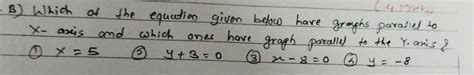 (4 Marks)
B) Which of the equation given below have graphs parallel to
X-axis and which ones have graph parallel to the Y-axis?
① x = 5 ② y+3=0 ③ x-8=0 ④ y=-8